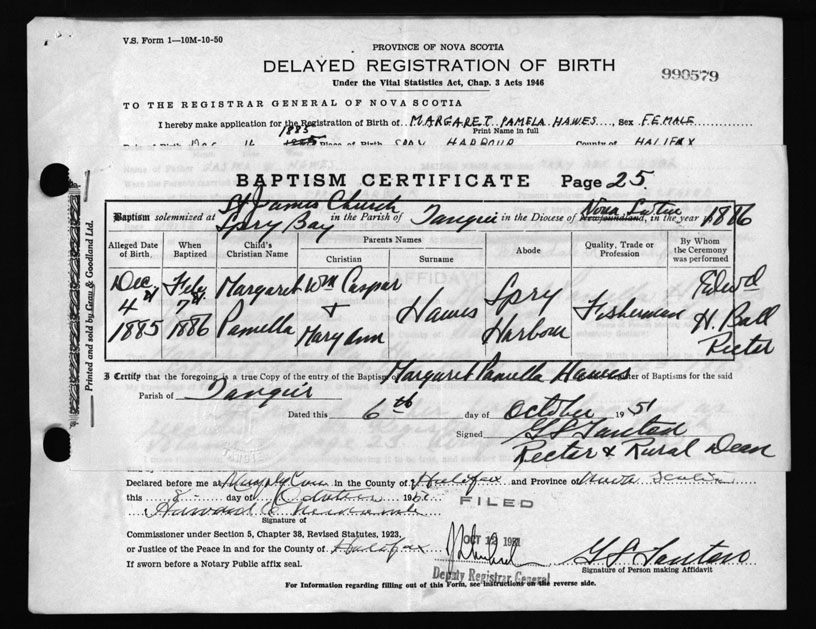 V.S. Form 1—10M-10-50
PROVINCE OF NOVA SCOTIA
DELAYED REGISTRATION OF BIRTH
990579
Under the Vital Statistics Act, Chap. 3 Acts 1946
TO THE REGISTRAR GENERAL OF NOVA SCOTIA
I hereby make application for the Registration of Birth of MARGARET PAMELA HAWES, Sex FEMALE
Print Name in full
1885
Place of Birth SPRY HARBOUR County of HALIFAX
BAPTISM CERTIFICATE Page 25
Baptism solemnized at St James Church Spry Bay in the Parish of Tangier in the Diocese of Nova Scotia Newfoundland, in the year 1886
Alleged Date of Birth When Baptized Child's Christian Name Parents Names Abode Quality, Trade or Profession By Whom the Ceremony was performed
Christian Surname
Dec 4th 1885 Feb 7th 1886 Margaret Pamella Wm Caspar + Mary Ann Hawes Spry Harbour Fisherman Edwd H. Ball Recter
I Certify that the foregoing is a true Copy of the entry of the Baptism of Margaret Pamella Hawes Register of Baptisms for the said
Parish of Tangier
Dated this 6th day of October 1951
Signed
Recter & Rural Dean
Printed and sold by Genu & Goodland Ltd.
Declared before me at in the County of Halifax and Province of Nova Scotia
this 8 day of October
FILED
Signature of
Commissioner under Section 5, Chapter 38, Revised Statutes, 1923,
or Justice of the Peace in and for the County of Halifax
OCT 12 1951
If sworn before a Notary Public affix seal.
Deputy Registrar General
Signature of Person making Affidavit
For Information regarding filling out of this Form, see instructions on the reverse side.